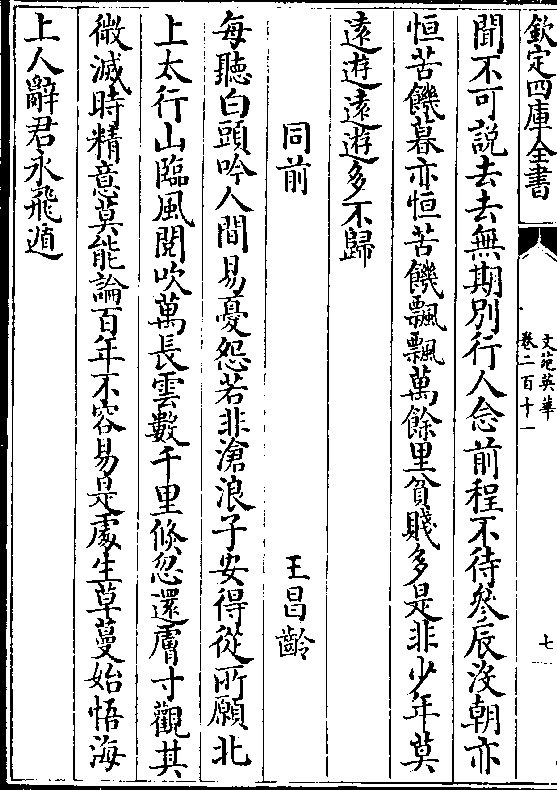 欽定四庫全書
文苑英華
卷二百十一
七
聞不可説去去無期別行人念前程不待參辰沒朝亦
恒苦饑暮亦恒苦饑飄飄萬餘里貧賤多是非少年莫
遠遊遠遊多不歸
同前 王昌齡
每聽白頭吟人間易憂怨若非滄浪子安得從所願北
上太行山臨風閱吹萬長雲數千里倐忽還膚寸觀其
微滅時精意莫能論百年不容易是處生草蔓始悟海
上人辭君永飛遁